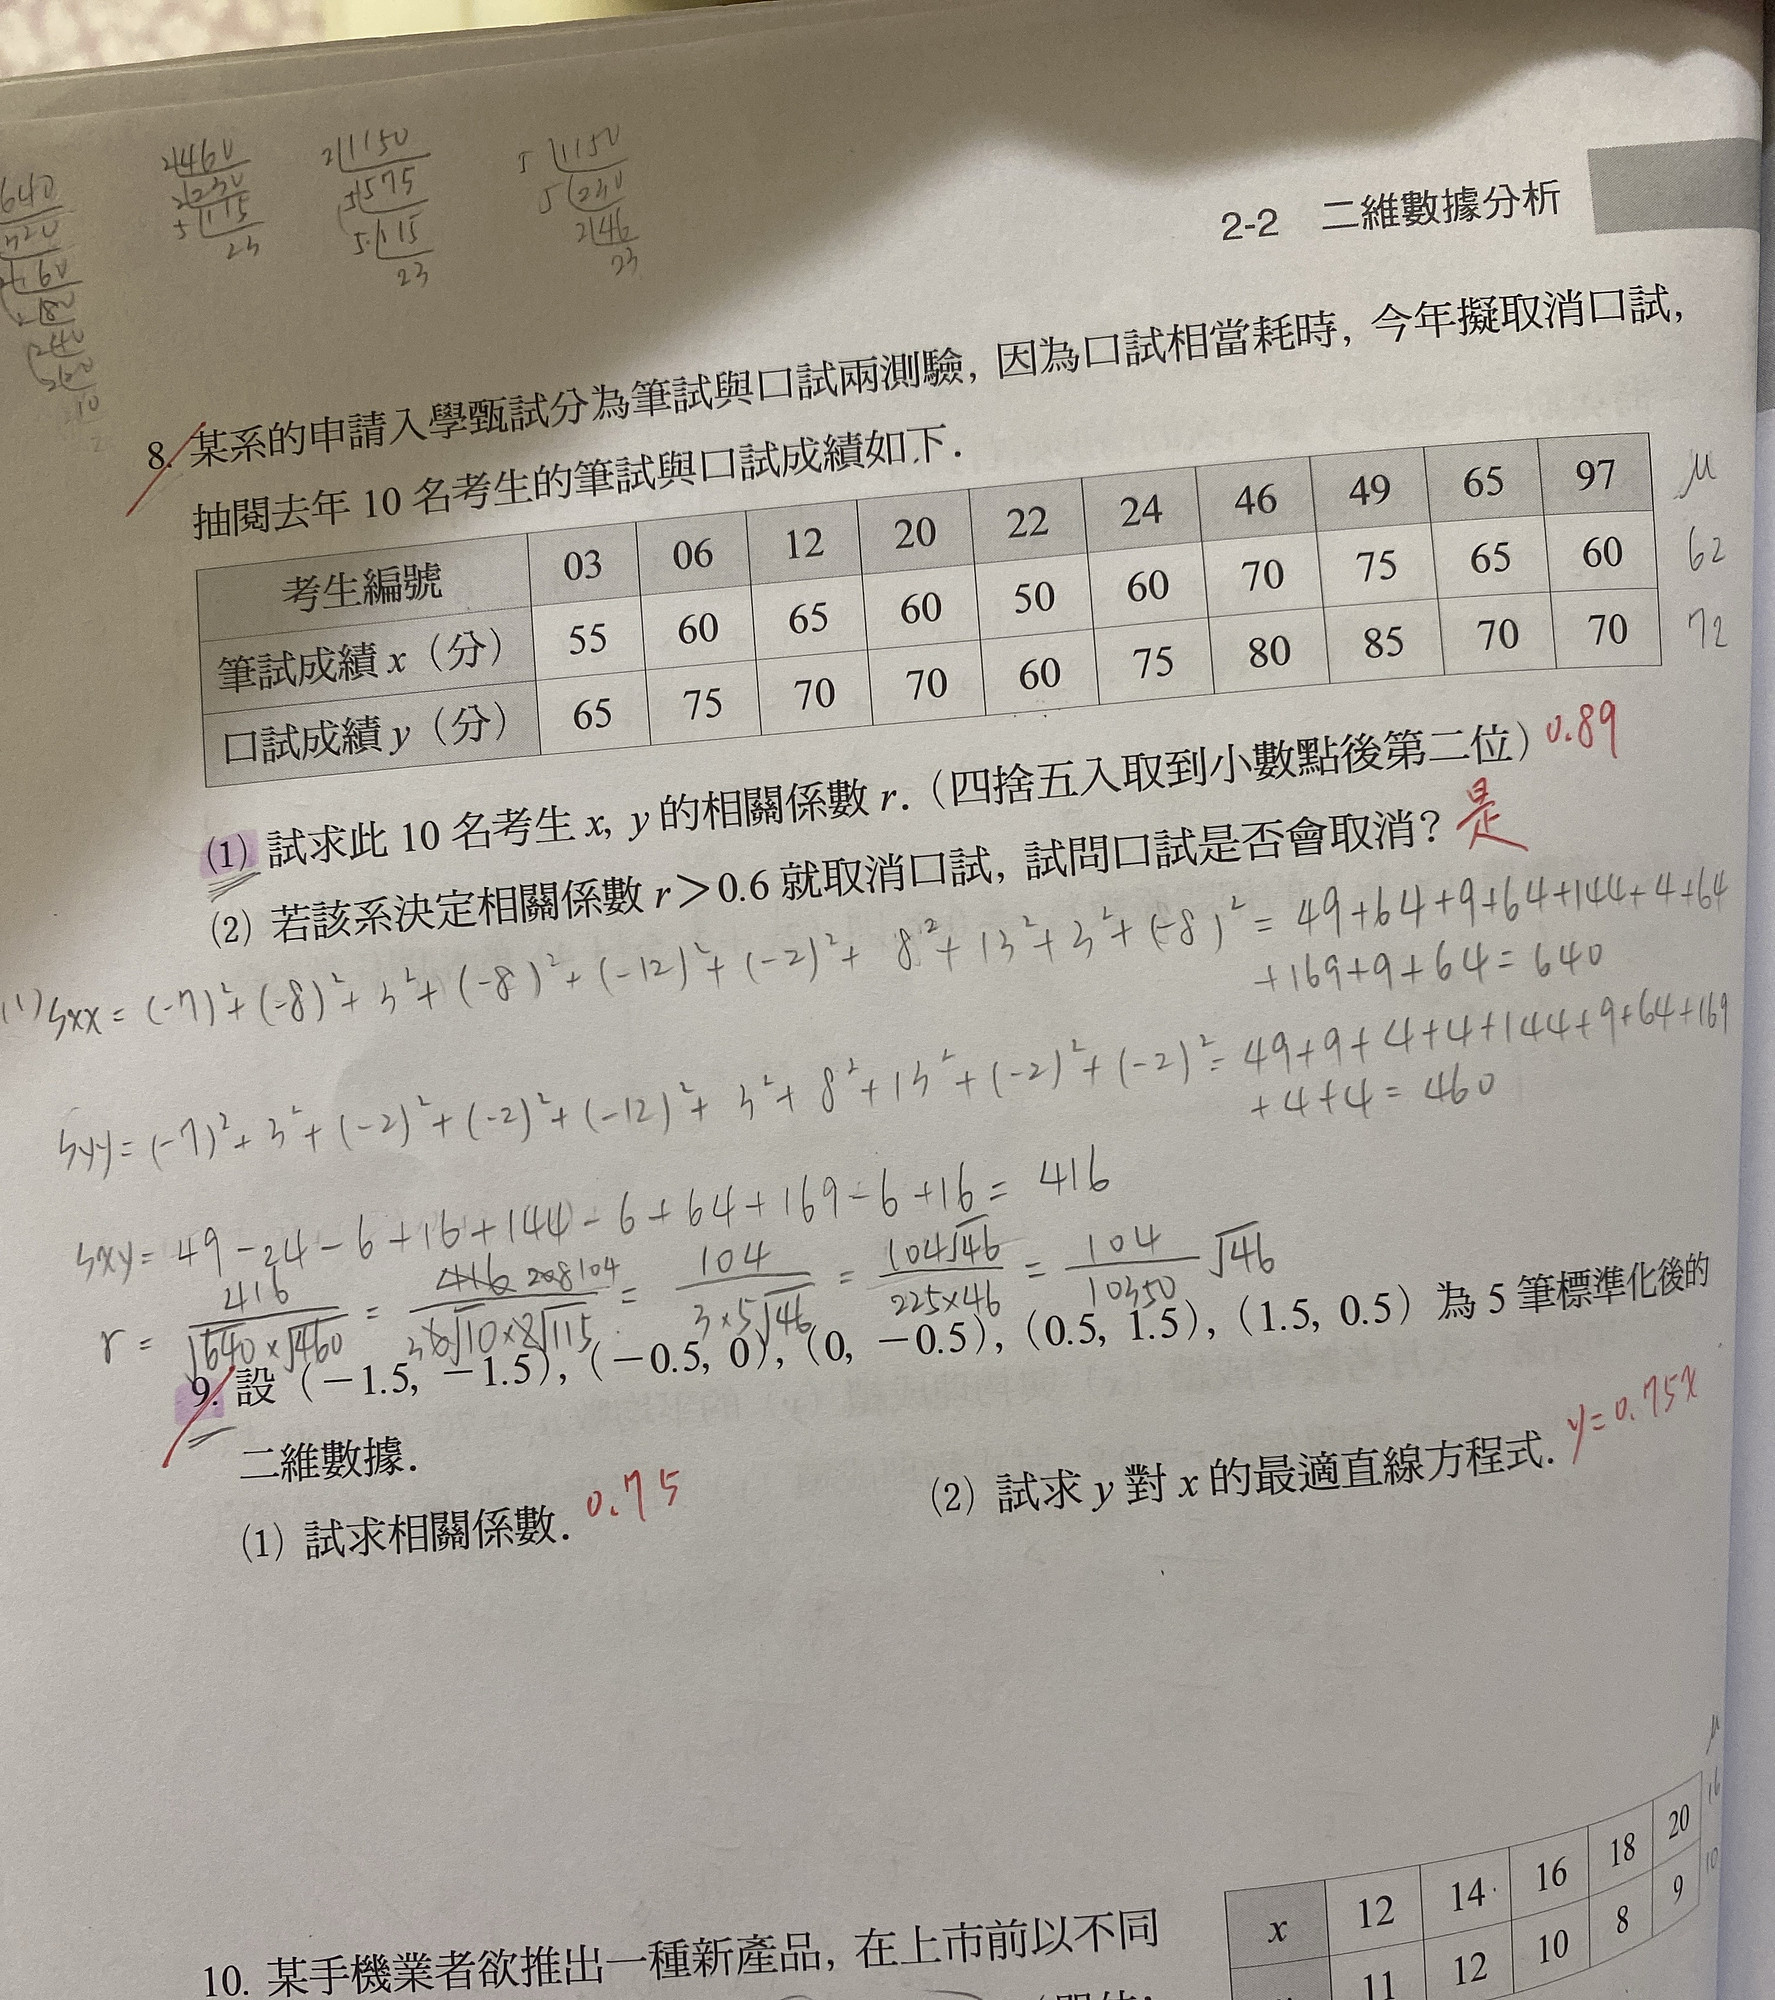 640
320
160
80
40
20
10
2
2 460
2 230
5 115
23
2 1150
5 575
5 115
23
5 1150
5 230
2 46
23
2-2 二維數據分析
8. 某系的申請入學甄試分為筆試與口試兩測驗, 因為口試相當耗時, 今年擬取消口試,
抽閱去年 10 名考生的筆試與口試成績如下.
考生編號 03 06 12 20 22 24 46 49 65 97 μ
筆試成績 x（分） 55 60 65 60 50 60 70 75 65 60 62
口試成績 y（分） 65 75 70 70 60 75 80 85 70 70 72
(1) 試求此 10 名考生 x, y 的相關係數 r.（四捨五入取到小數點後第二位） 0.89
(2) 若該系決定相關係數 r＞0.6 就取消口試, 試問口試是否會取消? 是
(1) Sxx = (-7)²+(-8)²+3²+(-8)²+(-12)²+(-2)²+8²+13²+3²+(-8)² = 49+64+9+64+144+4+64
+169+9+64=640
Syy = (-7)²+3²+(-2)²+(-2)²+(-12)²+3²+8²+13²+(-2)²+(-2)² = 49+9+4+4+144+9+64+169
+4+4=460
Sxy = 49-24-6+16+144-6+64+169-6+16 = 416
r = 416/√640×√460 = 416 208 104/3 6√10×2√115 = 104/3×5√46 = 104√46/225×46 = 104/10350 √46
9. 設（－1.5, －1.5）,（－0.5, 0）,（0, －0.5）,（0.5, 1.5）,（1.5, 0.5）為 5 筆標準化後的
二維數據.
(1) 試求相關係數. 0.75
(2) 試求 y 對 x 的最適直線方程式. y=0.75x
μ
x 12 14 16 18 20 16
11 12 10 8 9 10
10. 某手機業者欲推出一種新產品, 在上市前以不同